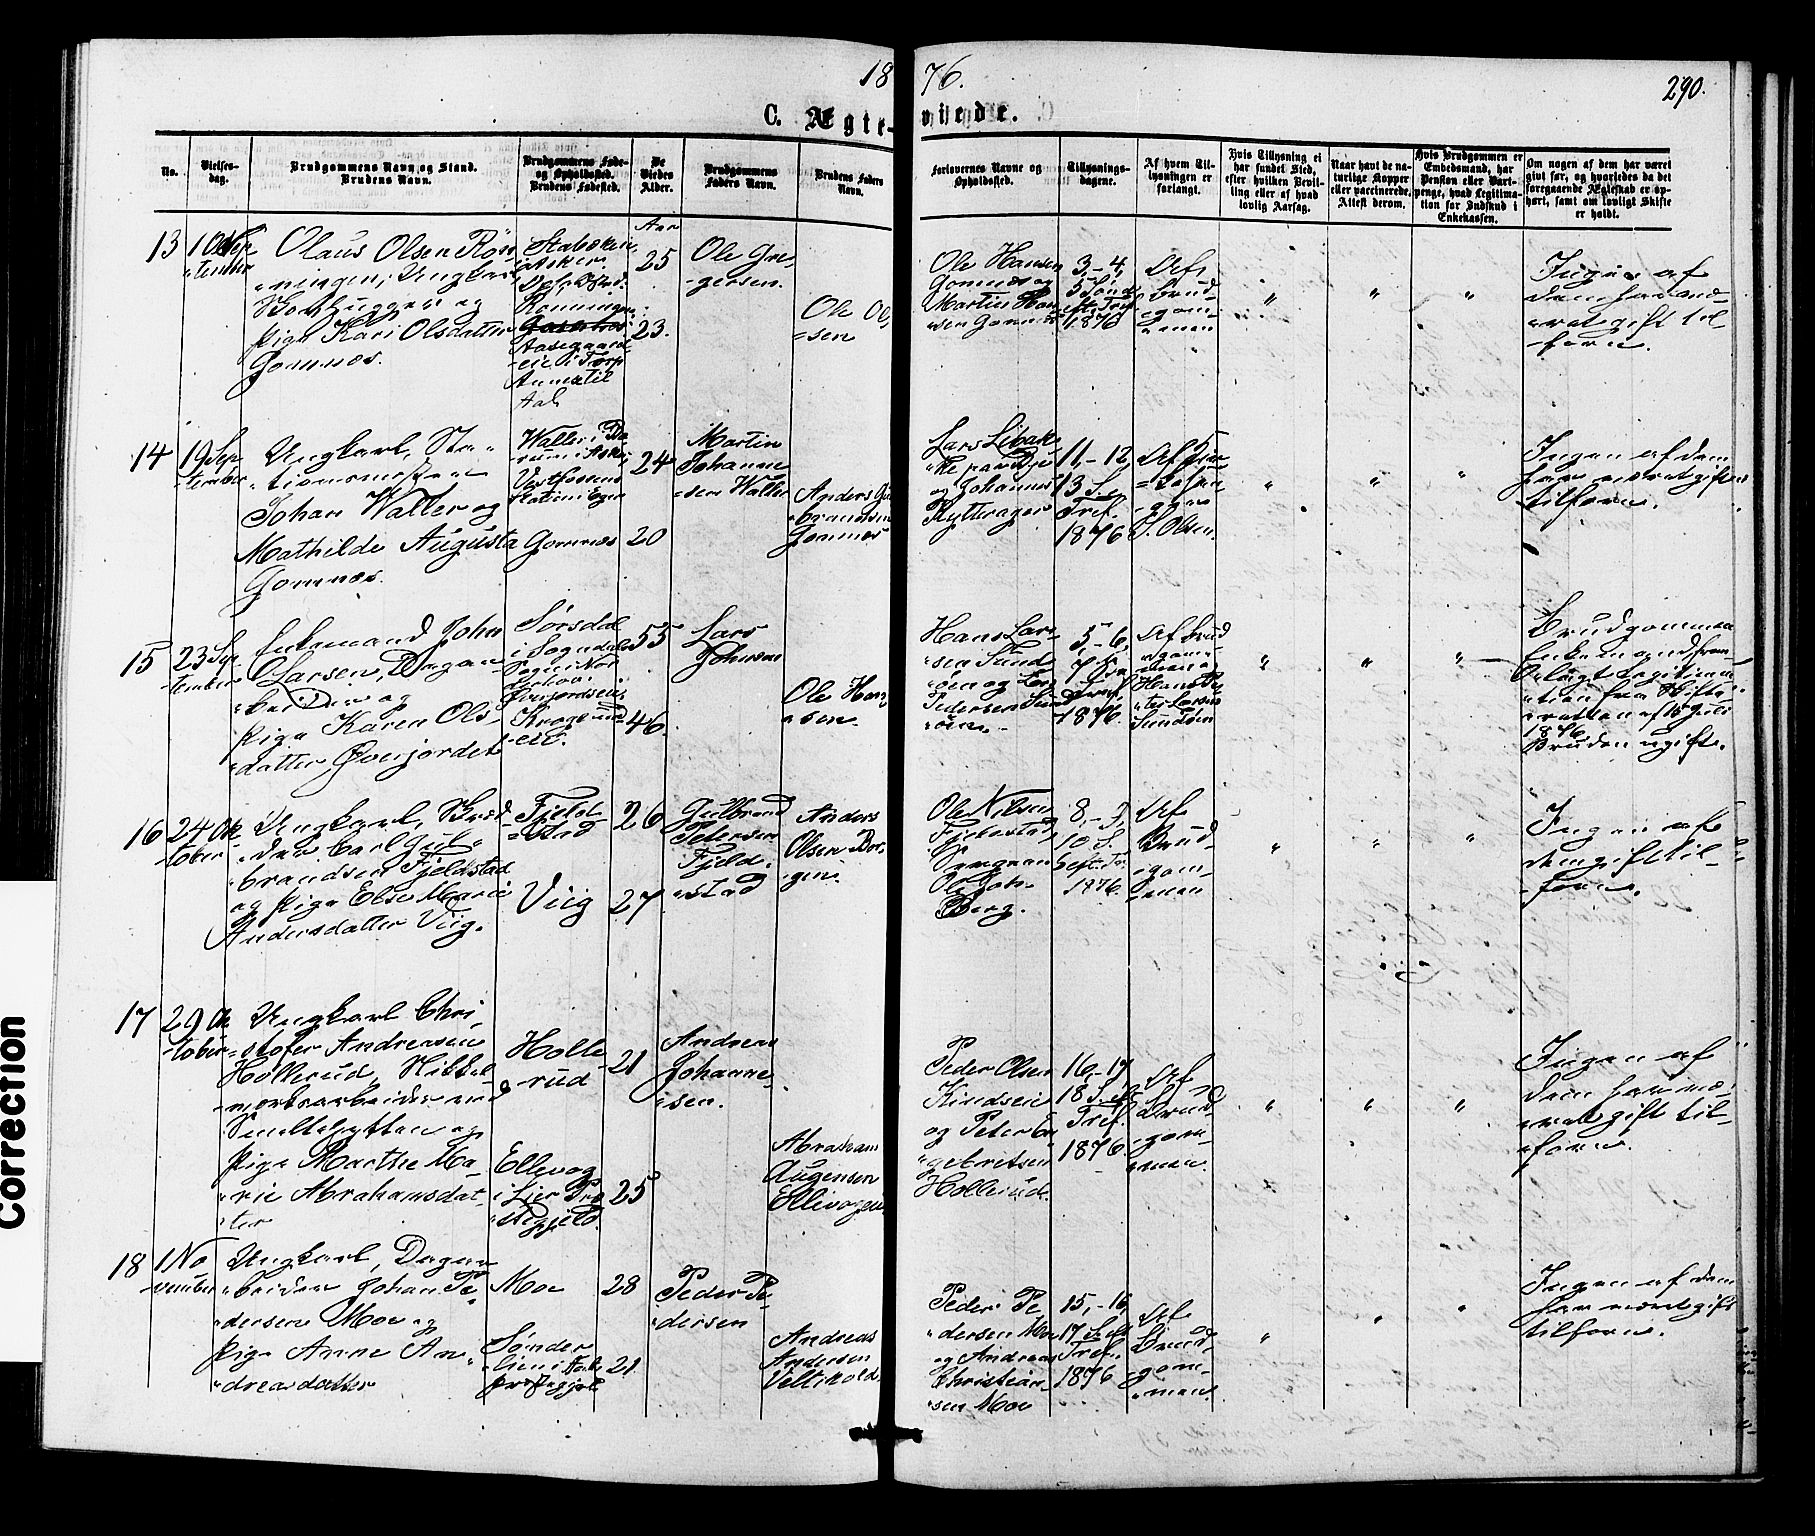 1876.
290.
C. Ægteviede.
No.
Vielses-
dag.
Brudgommens Navn og Stand.
Brudens Navn.
Brudgommens Føde-
og Opholdssted.
Brudens Fødested.
De
Viedes
Alder.
Brudgommens
Faders Navn.
Brudens Faders
Navn.
Forlovernes Navne og
Opholdssted.
Tillysnings-
dagene.
Af hvem Til-
lysningen er
forlangt.
Hvis Tillysning ei
har fundet Sted,
efter hvilken Bevil-
ling eller af hvad
lovlig Aarsag.
Naar havt de na-
turlige Kopper
eller vaccinerede,
Attest derom.
Hvis Brudgommen er
Embedsmand, har
Pension eller Vart-
penge, hvad Legitima-
tion for Indskud i
Enkekassen.
Om nogen af dem har været
gift før, og hvorledes da det
foregaaende Ægteskab er op-
hørt, samt om lovligt Skifte
er holdt.
13
Sep
tember
Olaus Olsen Røn
ningen, Ungkarl,
og
Pige Kari Olsdatter
Gomnæs.
i Asker.
Rønningen
i Torp
Annex til
Aal
Aar
25
23.
Ole Gre
gersen.
Ole Ol
sen
Ole Hansen
Gomnæs og
Martin Han
sen Gomnæs
3,-4,
5 Sønd
eft. Tref
1876
Af
Brud
gom
men
"
"
"
Ingen af
dem har væ
ret gift til
forn.
14
19 Sep
tember
Ungkarl, Sta
tionsmester
Johan Waller og
Mathilde Augusta
Gomnæs.
Waller i Bæ
rum i Asker,
Vestfossens
Station i Eger
Gomnæs
24
20
Martin
Johanne
sen Waller
Anders Gul
brandsen
Gomnæs
Lars
og Johannes
Rytterager
11,-12,
13 S. e
Tref.
1876
S. Olsen.
"
"
"
Ingen af dem
har været gift
tilforn.
15
23 Sep
tember
Enkemand John
Larsen, Dagar
beider og
Pige Karen Ols
datter Øverjordet
Sørsdal
i Sogndals
55
46
Lars
Johnsen
Ole Han
sen
Hans Lar
sen Sund
øen og
Pedersen Sund
øen.
5,-6,
1876.
Af Brud
gom
men og
Hans
Larsen
Sundøen
"
"
"
Brudgommen
Enkemand, frem
lagt Legitima
tion fra Skifte
retten af 15 Juli
1876
Bruden ugift.
16
24 Ok
tober
Ungkarl,
Carl Gul
brandsen Fjeldstad
og Pige Else Marie
Andersdatter Viig.
Fjeld
stad
Viig
26
27
Gulbrand
Petersen
Fjeld
stad
Anders
Olsen Bor
gen.
Ole Nilsen
Fjeldstad
Ole Joh.
Berg.
8,-9,
10 S.
Eft. Tr.
1876.
Af
Brud
gom
men
"
"
"
Ingen af
dem gift til
forn.
17
29 Ok
tober
Ungkarl Chri
stofer Andreasen
Hollerud,
arbeider ved
Smeltehytten og
Pige Marthe Ma
rie Abrahamsdat
ter
Holle
rud
Ellevog
i Lier Præ
stegjeld
21
25
Andreas
Johanne
sen.
Abraham
Augensen
Ellevogen
Peder Olsen
Kindsen
og Peter En
gebritsen
Hollerud.
16,-17
18 S. e
Tref.
1876.
Af
Brud
gom
men.
"
"
"
Ingen af
dem har væ
ret gift til
forn.
18
1 No
vember
Ungkarl, Dagar
beider Johan Pe
dersen Moe og
Pige Anne An
dreasdatter
Moe
Sønder
28
21
Peder Pe
dersen
Andreas
Andersen
Peder Pe
dersen Moe
og Andreas
Christian
sen Moe
15,-16,
17 S. e
Tref.
1876
Af
Brud
gom
men.
"
"
"
Ingen af dem
har været gift
tilforn.
Correction